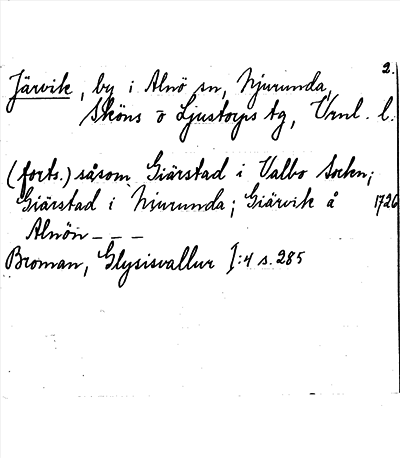 2.
Järvik, by i Alnö sn, Njurunda,
Sköns o Ljustorps tg, Vrnl. l.
(forts.) såsom Giärstad i Valbo Sockn;
Giärstad i Njurunda; Giärvik å 1726
Alnön - - -
Broman, Glysisvallur I:4 s. 285